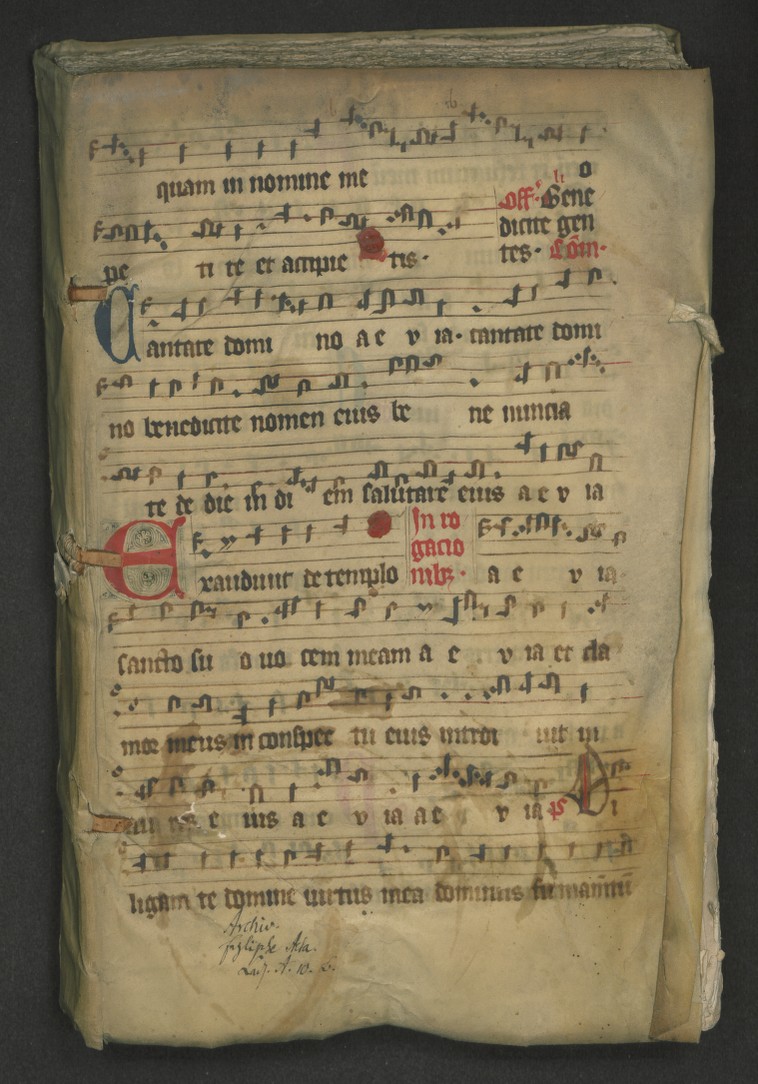 quam in nomine me o
off. Bene
dicite gen
pe ti te et accipie tis.
tes. Com.
Cantate domi no a e v ia. cantate domi
no benedicite nomen eius be ne nuncia
te de die in di em salutare eius a e v ia
In ro
gacio
nibz.
Exaudivit de templo a e v ia.
sancto su o vo cem meam a e v ia et cla
mor meus in conspec tu eius introi vit in
e ius a e v ia a e v ia ps Di
ligam te domine virtus mea dominus
Archiv.
A. 10.